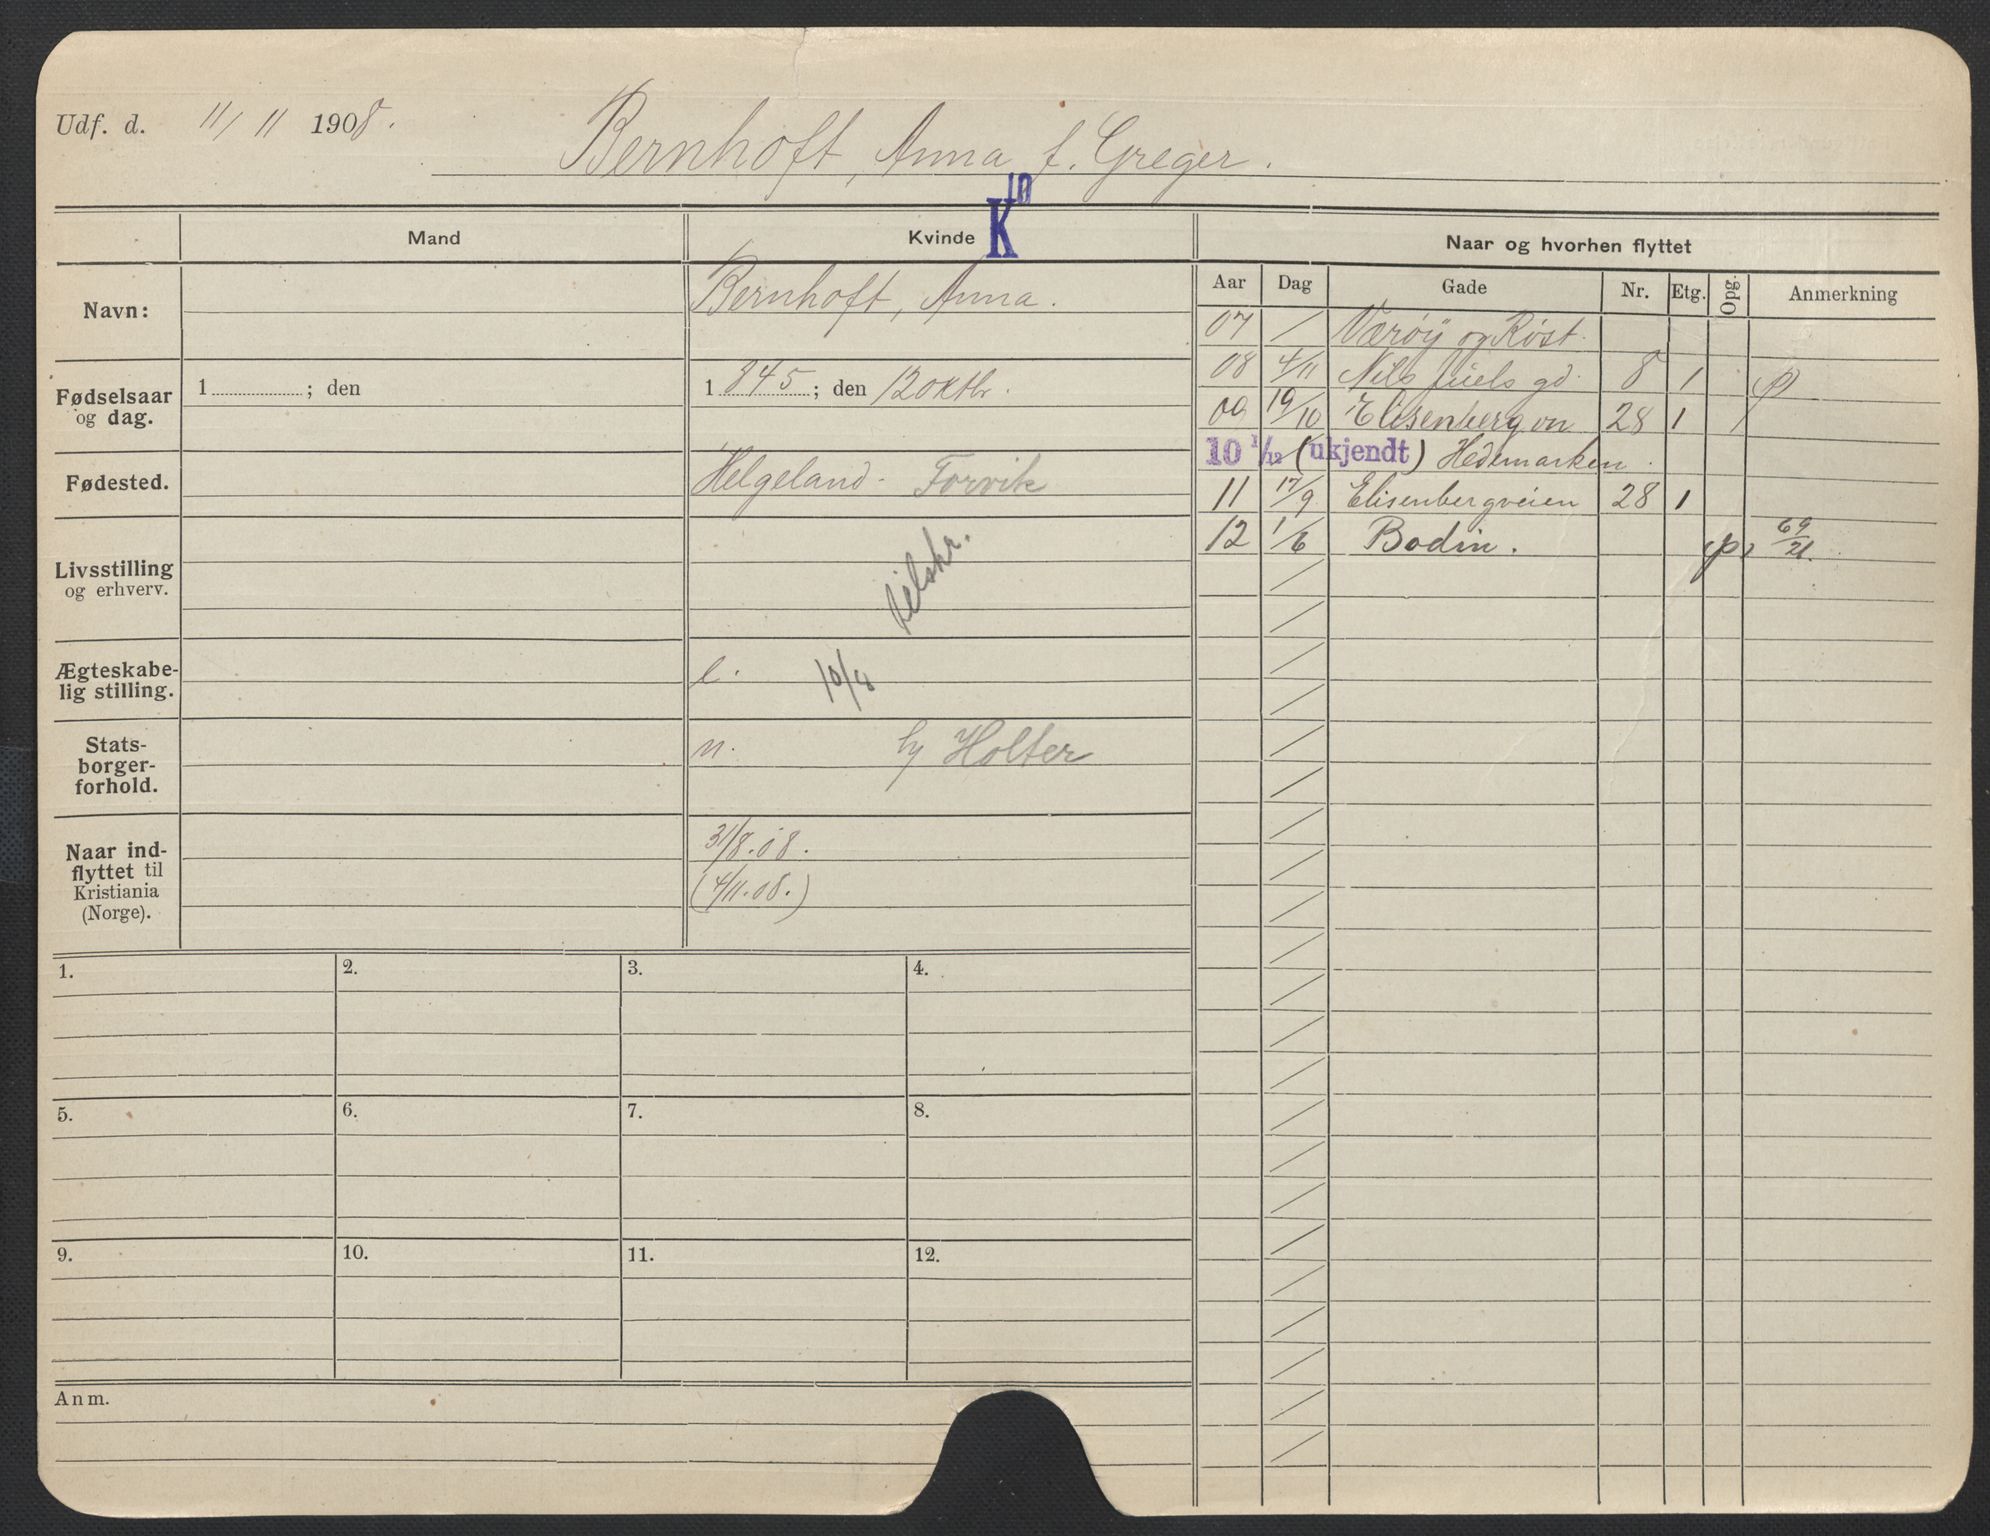 Udf. d. 11/11 1908.
Bernhoft, Anna f. Greger.
K 10
Mand
Kvinde
Naar og hvorhen flyttet
Aar Dag Gade Nr. Etg. Opg. Anmerkning
Navn:
Bernhoft, Anna.
Fødselsaar og dag.
1 ; den
1 845 ; den 12 oktbr.
Fødested.
Helgeland - Forvik
Livsstilling og erhverv.
Ægteskabelig stilling.
e.
10/4
Statsborgerforhold.
n.
Holter
Naar indflyttet til Kristiania (Norge).
31/8.08.
(4/11.08.)
07 / Værøy og Røst.
08 4/11 Nils Juels gd. 8 1
09 19/10 Elisenberg vn 28 1
10 1/12 (ukjendt) Hedemarken.
11 17/9 Elisenbergveien 28 1
12 1/6 Bodin. (p) 69/21.
1. 2. 3. 4.
5. 6. 7. 8.
9. 10. 11. 12.
Anm.